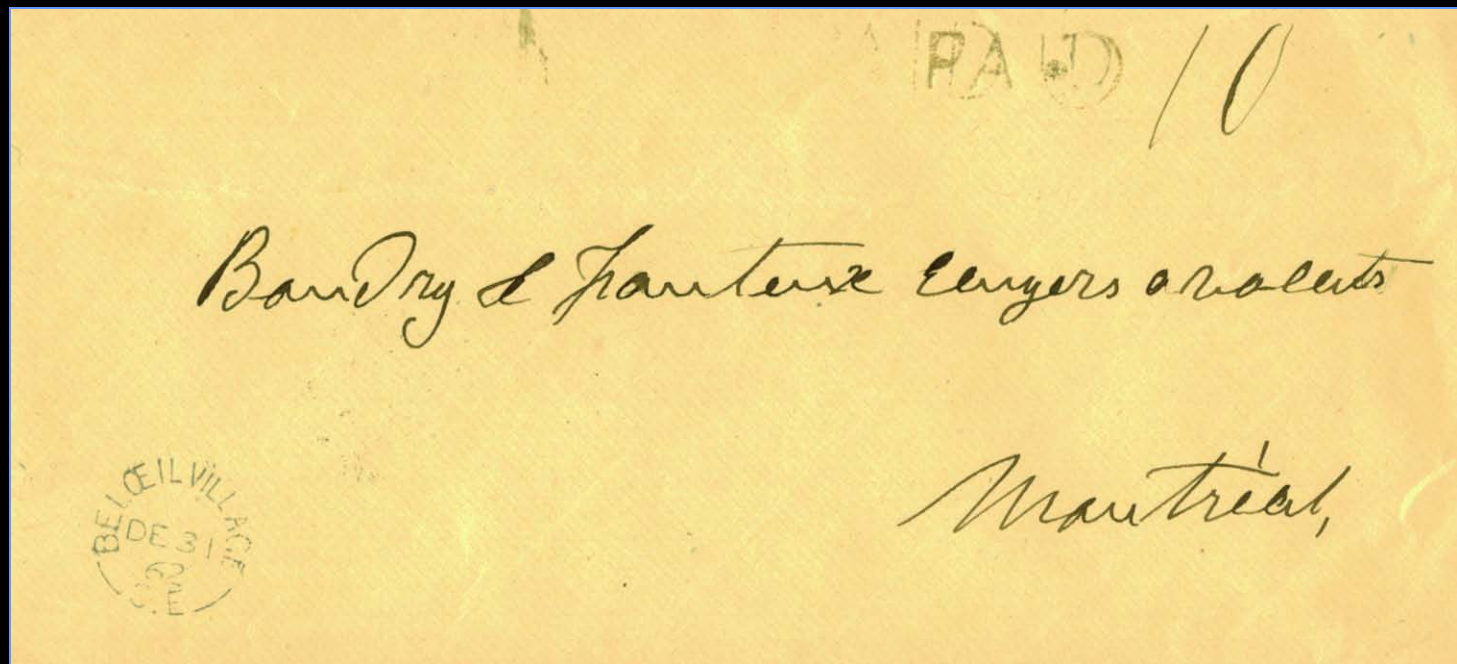 PAID 10
Baudry & Fauteux Ecuyers avocats
Montréal,
BELŒIL VILLAGE
DE 31